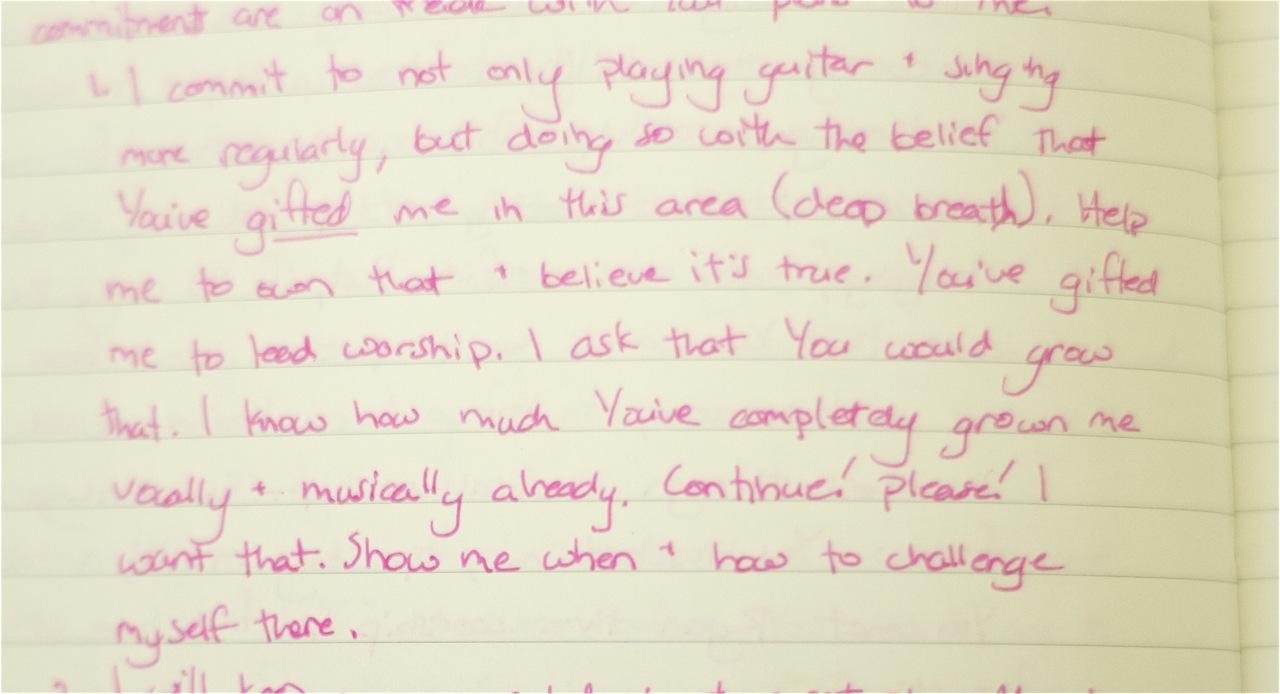 commitment are on
↳ I commit to not only playing guitar + singing
more regularly, but doing so with the belief that
You've gifted me in this area (deep breath). Help
me to own that + believe it's true. You've gifted
me to lead worship. I ask that You would grow
that. I know how much You've completely grown me
vocally + musically already. Continue! please! I
want that. Show me when + how to challenge
myself there.
I will